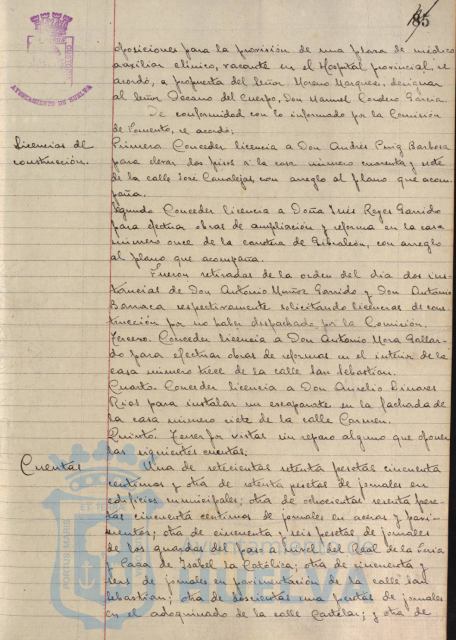 85
AYUNTAMIENTO DE HUELVA
oposiciones para la provisión de una plaza de médico
auxiliar clínico, vacante en el Hospital provincial, se
acordó, a propuesta del Señor Moreno Marquez, designar
al Señor Decano del Cuerpo, Don Manuel Cordero García.
De conformidad con lo informado por la Comisión
de Fomento, se acordó:
Licencias de
construcción.
Primero. Conceder licencia a Don Andrés Puig Barbosa
para elevar dos pisos a la casa número cuarenta y siete
de la calle José Canalejas, con arreglo al plano que acom-
paña.
Segundo. Conceder licencia a Doña Inés Reyes Garrido
para efectuar obras de ampliación y reforma en la casa
número once de la carretera de Gibraleón, con arreglo
al plano que acompaña.
Fueron retiradas de la orden del día dos ins-
tancias de Don Antonio Muñoz Garrido y Don Antonio
Barraca respectivamente solicitando licencias de cons-
trucción por no haber despachado por la Comisión.
Tercero. Conceder licencia a Don Antonio Mora Gallar-
do para efectuar obras de reformas en el interior de la
casa número trece de la calle San Sebastián.
Cuarto. Conceder licencia a Don Aurelio Linares
Rios para instalar un escaparate en la fachada de
la casa número siete de la calle Carmen.
Quinto: Tener por vistas sin reparo alguno que oponer
las siguientes cuentas;
Cuentas
Una de setecientas setenta pesetas cincuenta
centimos y otra de setenta pesetas de jornales en
edificios municipales; otra de ochocientas sesenta pese-
tas cincuenta centimos de jornales en aceras y pavi-
mentos; otra de cincuenta y seis pesetas de jornales
de los guardas del paso a nivel del Real de la Feria
y Casa de Isabel la Católica; otra de cincuenta y
seis de jornales en pavimentación de la calle San
Sebastián; otra de doscientas una pesetas de jornales
en el adoquinado de la calle Castelar; y otra de